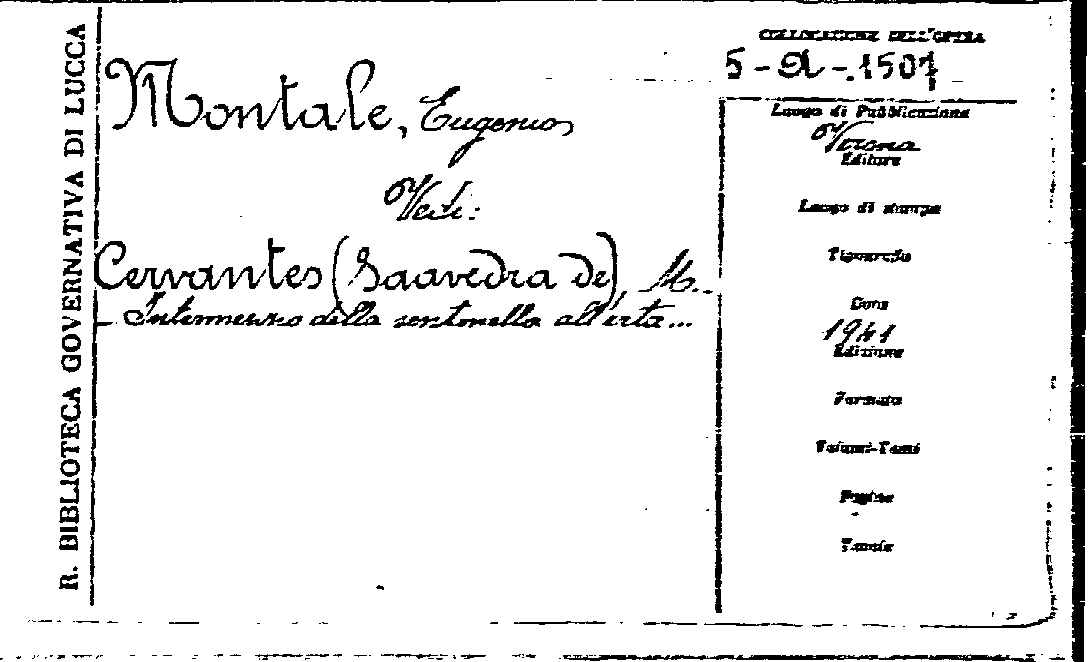 R. BIBLIOTECA GOVERNATIVA DI LUCCA
Montale, Eugenio
Vedi:
Cervantes (Saavedra de), M.
- Intermezzo della sentinella all'erta...
COLLOCAZIONE DELL'OPERA
5-A-.1507
Luogo di Pubblicazione
Verona
Editore
Luogo di stampa
Tipografia
Data
1941
Edizione
Formato
Volumi-Tomi
Pagine
Tavole